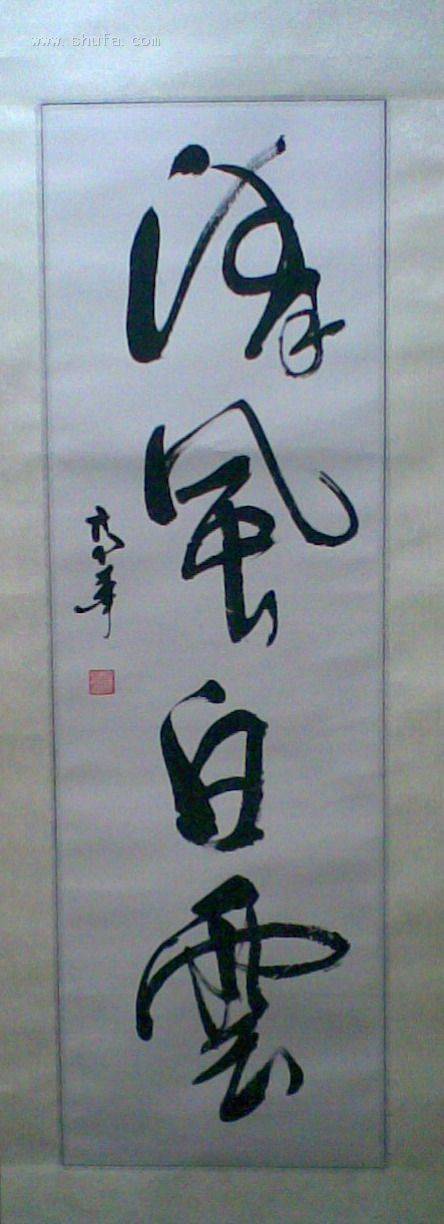 www.shufa.com
清風白雲